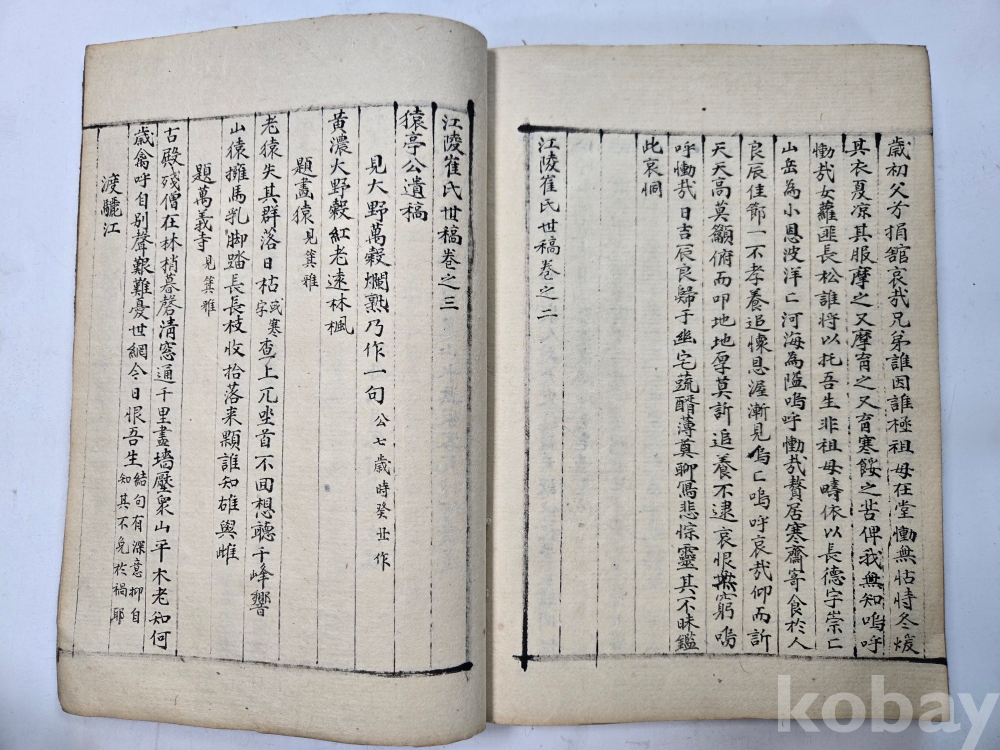 歲初父㒱捐舘哀㢤兄弟誰因誰極祖母在堂慟無怙恃冬煖
其衣夏凉其服摩之又摩育之又育寒餒之苦俾我無知嗚呼
慟㢤女蘿匪長松誰將以托吾生非祖母疇依以長德字崇亡
山岳為小恩波洋亡河海為隘嗚呼慟㢤贅居寒齋寄食於人
良辰佳節一不孝養追懷恩渥漸見嗚亡嗚呼哀㢤仰而訢
天天高莫籲俯而叩地地厚莫訢追養不逮哀恨無窮嗚
呼慟㢤日吉辰良歸于幽宅蔬醑薄奠聊寫悲悰靈其不昧鑑
此哀悃
江陵崔氏世稿卷之二
江陵崔氏世稿卷之三
猿亭公遺稿
見大野萬穀爛熟乃作一句 公七歲時癸丑作
黃濃大野穀紅老遠林楓
題畫猿 見箕雅
老猿失其群落日枯 或寒字 查上兀坐首不回想聽千峰響
山猿擁馬乳脚踏長長枝收拾落來顆誰知雄與雌
題萬義寺 見箕雅
古殿殘僧在林梢暮磬清窓通千里盡墻壓衆山平木老知何
歲禽呼自別聲艱難憂世網今日恨吾生 結句有深意抑自知其不免於禍耶
渡驪江
kobay